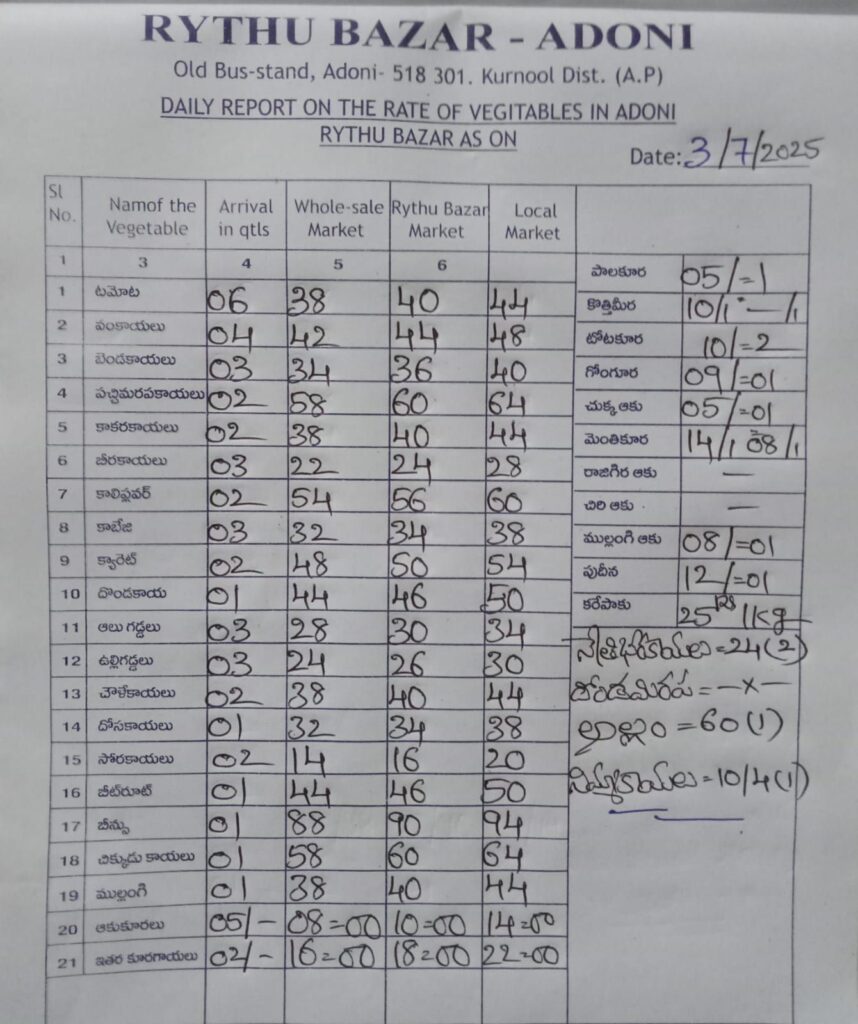 RYTHU BAZAR - ADONI
Old Bus-stand, Adoni- 518 301. Kurnool Dist. (A.P)
DAILY REPORT ON THE RATE OF VEGITABLES IN ADONI
RYTHU BAZAR AS ON
Date: 3/7/2025
Sl No. Namof the Vegetable Arrival in qtls Whole-sale Market Rythu Bazar Market Local Market
1 3 4 5 6
1 టమోట 06 38 40 44
2 వంకాయలు 04 42 44 48
3 బెండకాయలు 03 34 36 40
4 పచ్చిమిరపకాయలు 02 58 60 64
5 కాకరకాయలు 02 38 40 44
6 బీరకాయలు 03 22 24 28
7 కాలిఫ్లవర్ 02 54 56 60
8 కాబేజి 03 32 34 38
9 క్యారెట్ 02 48 50 54
10 దొండకాయ 01 44 46 50
11 ఆలు గడ్డలు 03 28 30 34
12 ఉల్లిగడ్డలు 03 24 26 30
13 చౌళేకాయలు 02 38 40 44
14 దోసకాయలు 01 32 34 38
15 సోరకాయలు 02 14 16 20
16 బీట్‌రూట్ 01 44 46 50
17 బీన్సు 01 88 90 94
18 చిక్కుడు కాయలు 01 58 60 64
19 ముల్లంగి 01 38 40 44
20 ఆకుకూరలు 05/- 08=00 10=00 14=00
21 ఇతర కూరగాయలు 02/- 16=00 18=00 22=00
పాలకూర 05/=1
కొత్తిమీర 10/1 - /1
టోటకూర 10/=2
గోంగూర 09/=01
చుక్క ఆకు 05/=01
మెంతికూర 14/1 08/1
రాజిగిర ఆకు —
చిరి ఆకు —
ముల్లంగి ఆకు 08/=01
పుదీన 12/=01
కరేపాకు 25 Rs 1Kg
నేతిబీరకాయలు=24(2)
=-x-
అల్లం =60(1)
నిమ్మకాయలు=10/4(1)